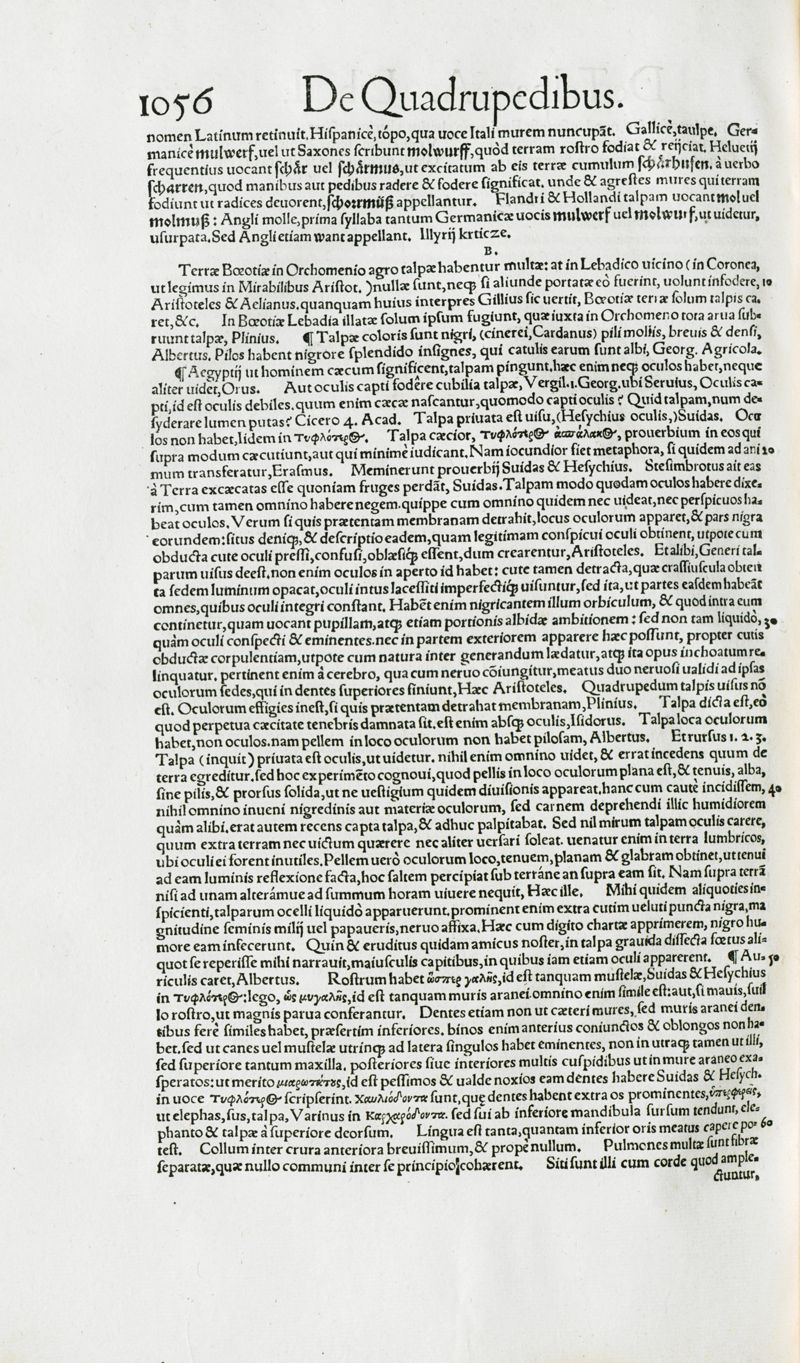 1056 De Quadrupedibus.
nomen Latinum retinuit. Hiſpanicè, tópo, qua uoce Itali murem nuncupãt. Gallicè, taulpe. Ger-
manicè mulwerf, uel ut Saxones ſcribunt molwurff, quòd terram roſtro fodiat & reijciat. Heluetij
frequentius uocant ſchår uel ſchårmus, ut excitatum ab eis terræ cumulum ſchårhuſen. à uerbo
ſcharren, quod manibus aut pedibus radere & fodere ſignificat. unde & agreſtes mures qui terram
fodiunt ut radices deuorent, ſchorrmüß appellantur. Flandri & Hollandi talpam uocant mol uel
molmuß: Angli molle, prima ſyllaba tantum Germanicæ uocis mulwerf uel molwurf, ut uidetur,
uſurpata. Sed Angli etiam want appellant. Illyrij krticze.
B.
Terræ Bœotiæ in Orchomenio agro talpæ habentur multæ: at in Lebadico uicino (in Coronea,
ut legimus in Mirabilibus Ariſtot. ) nullæ ſunt, neqꝫ ſi aliunde portatæ eò fuerint, uolunt infodere, 10
Ariſtoteles & Aelianus. quanquam huius interpres Gillius ſic uertit, Bœotiæ terræ ſolum talpis ca-
ret, &c. In Bœotiæ Lebadia illatæ ſolum ipſum fugiunt, quæ iuxta in Orchomeno tota arua ſub-
ruunt talpæ, Plinius. ¶ Talpæ coloris ſunt nigri, (cinerei, Cardanus) pili mollis, breuis & denſi,
Albertus. Pilos habent nigrore ſplendido inſignes, qui catulis earum ſunt albi, Georg. Agricola.
¶ Aegyptij ut hominem cæcum ſignificent, talpam pingunt. hæc enim neqꝫ oculos habet, neque
aliter uidet, Orus. Aut oculis capti fodêre cubilia talpæ, Vergil. 1. Georg. ubi Seruius, Oculis ca-
pti, id eſt oculis debiles. quum enim cæcæ naſcantur, quomodo capti oculis? Quid talpam, num de-
ſyderare lumen putas? Cicero 4. Acad. Talpa priuata eſt uiſu, (Heſychius oculis,) Suidas. Ocu
los non habet, lidem in τυφλότερος. Talpa cæcior, τυφλότερος ἀσπάλακος, prouerbium in eos qui
ſupra modum cæcutiunt, aut qui minimè iudicant. Nam iocundior fiet metaphora, ſi quidem ad ani 20
mum transferatur, Eraſmus. Meminerunt prouerbij Suidas & Heſychius. Steſimbrotus ait eas
à Terra excæcatas eſſe quoniam fruges perdãt, Suidas. Talpam modo quodam oculos habere dixe-
rim, cum tamen omnino habere negem. quippe cum omnino quidem nec uideat, nec perſpicuos ha-
beat oculos. Verum ſi quis prætentam membranam detrahit, locus oculorum apparet, & pars nigra
eorundem: ſitus deniqꝫ, & deſcriptio eadem, quam legitimam conſpicui oculi obtinent, utpote cum
obducta cute oculi preſſi, confuſi, oblæſiqꝫ eſſent, dum crearentur, Ariſtoteles. Et alibi, Generi tal-
parum uiſus deeſt, non enim oculos in aperto id habet: cute tamen detracta, quæ craſſiuſcula obten
ta ſedem luminum opacat, oculi intus laceſſiti imperfectiqꝫ uiſuntur, ſed ita, ut partes eaſdem habeãt
omnes, quibus oculi integri conſtant. Habẽt enim nigricantem illum orbiculum, & quod intra eum
continetur, quam uocant pupillam, atqꝫ etiam portionis albidæ ambitionem: ſed non tam liquidò, 30
quàm oculi conſpecti & eminentes. nec in partem exteriorem apparere hæc poſſunt, propter cutis
obductæ corpulentiam, utpote cum natura inter generandum lædatur, atqꝫ ita opus inchoatum re-
linquatur. pertinent enim à cerebro, qua cum neruo cõiungitur, meatus duo neruoſi ualidi ad ipſas
oculorum ſedes, qui in dentes ſuperiores ſiniunt, Hæc Ariſtoteles. Quadrupedum talpis uiſus nõ
eſt. Oculorum effigies ineſt, ſi quis prætentam detrahat membranam, Plinius. Talpa dicta eſt, eò
quod perpetua cæcitate tenebris damnata ſit. eſt enim abſqꝫ oculis, Iſidorus. Talpa loca oculorum
habet, non oculos. nam pellem in loco oculorum non habet piloſam, Albertus. Etruſcus 1. 2. 3.
Talpa (inquit) priuata eſt oculis, ut uidetur. nihil enim omnino uidet, & errat incedens quum de
terra egreditur. ſed hoc experimẽto cognoui, quod pellis in loco oculorum plana eſt, & tenuis, alba,
ſine pilis, & prorſus ſolida, ut ne ueſtigium quidem diuiſionis appareat. hanc cum cautè incidiſſem, 40
nihil omnino inueni nigredinis aut materiæ oculorum, ſed carnem deprehendi illic humidiorem
quàm alibi. erat autem recens capta talpa, & adhuc palpitabat. Sed nil mirum talpam oculis carere,
quum extra terram nec uictum quærere nec aliter uerſari ſoleat. uenatur enim in terra lumbricos,
ubi oculi ei forent inutiles. Pellem uerò oculorum loco, tenuem, planam & glabram obtinet, ut tenui
ad eam luminis reflexione facta, hoc ſaltem percipiat ſub terráne an ſupra eam ſit. Nam ſupra terrã
niſi ad unam alterámue ad ſummum horam uiuere nequit, Hæc ille. Mihi quidem aliquoties in-
ſpicienti, talparum ocelli liquidò apparuerunt. prominent enim extra cutim ueluti puncta nigra, ma
gnitudine ſeminis milij uel papaueris, neruo affixa. Hæc cum digito chartæ apprimerem, nigro hu-
more eam infecerunt. Quin & eruditus quidam amicus noſter, in talpa grauida diſſecta fœtus ali-
quot ſe reperiſſe mihi narrauit, maiuſculis capitibus, in quibus iam etiam oculi apparerent. ¶ Au- 50
riculis caret, Albertus. Roſtrum habet ὥσπερ γαλῆς, id eſt tanquam muſtelæ, Suidas & Heſychius
in τυφλότερος: lego, ὡς μυγαλῆς, id eſt tanquam muris aranei. omnino enim ſimile eſt: aut, ſi mauis, ſuil
lo roſtro, ut magnis parua conferantur. Dentes etiam non ut cæteri mures, ſed muris aranei den-
tibus ferè ſimiles habet, præſertim inferiores. binos enim anterius coniunctos & oblongos non ha-
bet. ſed ut canes uel muſtelæ utrinqꝫ ad latera ſingulos habet eminentes, non in utraqꝫ tamen ut illi,
ſed ſuperiore tantum maxilla. poſteriores ſiue interiores multis cuſpidibus ut in mure araneo exa-
ſperatos: ut meritò μιαρωτάτους, id eſt peſſimos & ualde noxios eam dentes habere Suidas & Heſych.
in uoce τυφλότερος ſcripſerint. Χαυλιόδοντα ſunt, quę dentes habent extra os prominentes,
ut elephas, ſus, talpa, Varinus in Καρχαρόδοντα. ſed ſui ab inferiore mandibula ſurſum tendunt, ele-
phanto & talpæ à ſuperiore deorſum. Lingua eſt tanta, quantam inferior oris meatus capere po- 60
teſt. Collum inter crura anteriora breuiſſimum, & propè nullum. Pulmones multæ ſunt fibræ
ſeparatæ, quæ nullo communi inter ſe principio cohærent. Siti ſunt illi cum corde quod ample-
ctuntur,